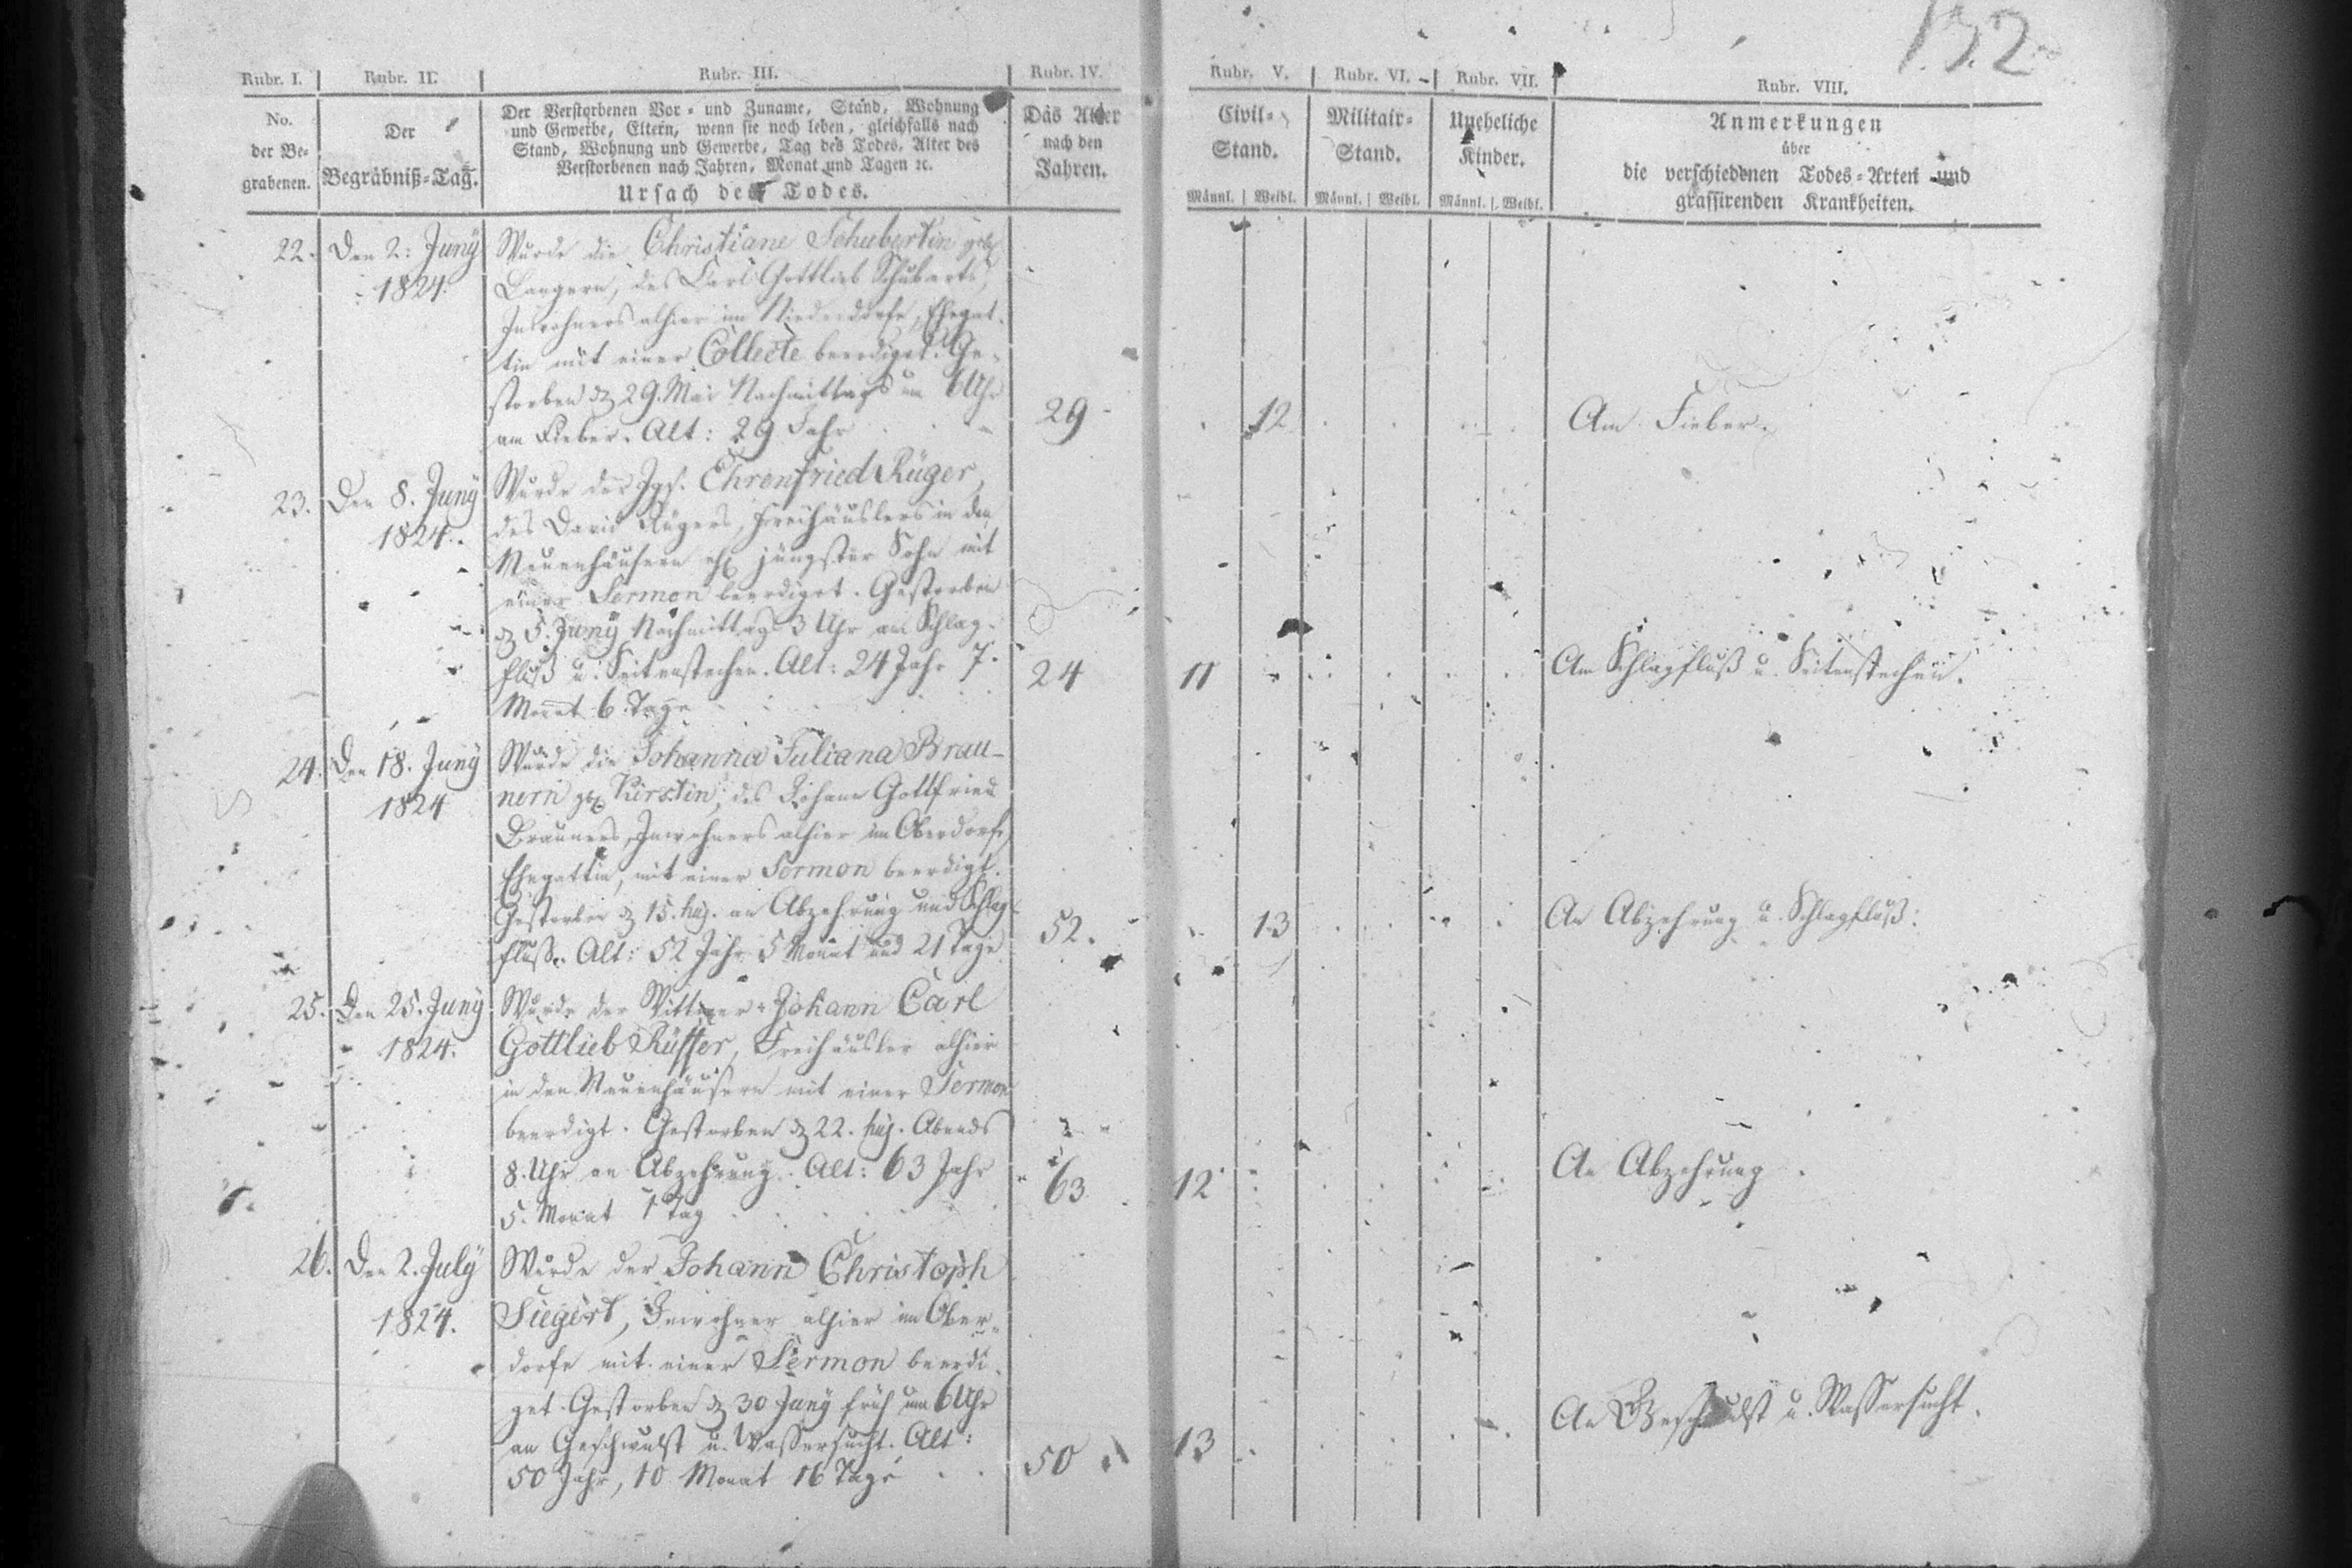 132
Rubr. I.
Rubr. II.
Rubr. III.
Rubr. IV.
Rubr. V.
Rubr. VI.
Rubr. VII.
Rubr. VIII.
No.
der Be-
grabenen.
Der
Begräbniß-Tag.
Der Verstorbenen Vor- und Zuname, Stand, Wohnung
und Gewerbe, Eltern, wenn sie noch leben, gleichfalls nach
Stand, Wohnung und Gewerbe, Tag des Todes, Alter des
Verstorbenen nach Jahren, Monat und Tagen ꝛc.
Ursach des Todes.
Das Alter
nach den
Jahren.
Civil-
Stand.
Männl. Weibl.
Militair-
Stand.
Männl. Weibl.
Uneheliche
Kinder.
Männl. Weibl.
Anmerkungen
über
die verschiedenen Todes-Arten und
grassirenden Krankheiten.
22.
Den 2: Juny
1824.
Wurde die Christiane Schubertin geb.
Langern, des Carl Gottlieb Schuberts,
Inwohners alhier im Niederdorfe, Ehegat-
tin mit einer Collecte beerdiget. Ge-
storben d. 29. Mai Nachmittags um 6 Uhr
am Fieber. Alt: 29 Jahr
29
12
Am Fieber.
23.
Den 8. Juny
1824.
Wurde der Jgs. Ehrenfried Rüger,
des David Rügers, Freihäuslers in den
Neuenhäusern ehl. jüngster Sohn mit
einer Sermon beerdiget. Gestorben
d. 5. Juny Nachmittag 3 Uhr am Schlag-
fluß u. Seitenstechen. Alt: 24 Jahr 7.
Monat 6. Tage
24
11
Am Schlagfluß u. Seitenstechen.
24.
Den 18. Juny
1824
Wurde die Johanna Juliana Brau-
nern geb. Kirstin, des Johann Gottfried
Brauners, Inwohners alhier im Oberdorfe,
Ehegattin, mit einer Sermon beerdigt.
Gestorben d. 15. huj. an Abzehrung und Schlag-
fluß. Alt: 52 Jahr 5 Monat und 21 Tage
52.
13
An Abzehrung u. Schlagfluß.
25.
Den 25. Juny
1824.
Wurde der Wittwer Johann Carl
Gottlieb Rüffer, Freihäusler alhier
in den Neuenhäusern mit einer Sermon
beerdigt. Gestorben d. 22. huj. Abends
8. Uhr an Abzehrung. Alt: 63 Jahr
5. Monat 1 Tag
63
12
An Abzehrung.
26.
Den 2. July
1824.
Wurde der Johann Christoph
Siegert, Inwohner alhier im Ober-
dorfe mit einer Sermon beerdi-
get. Gestorben d. 30 Juny früh um 6 Uhr
an Geschwulst u. Wassersucht. Alt:
50 Jahr, 10 Monat 16 Tage
50
13
An Geschwulst u. Wassersucht.